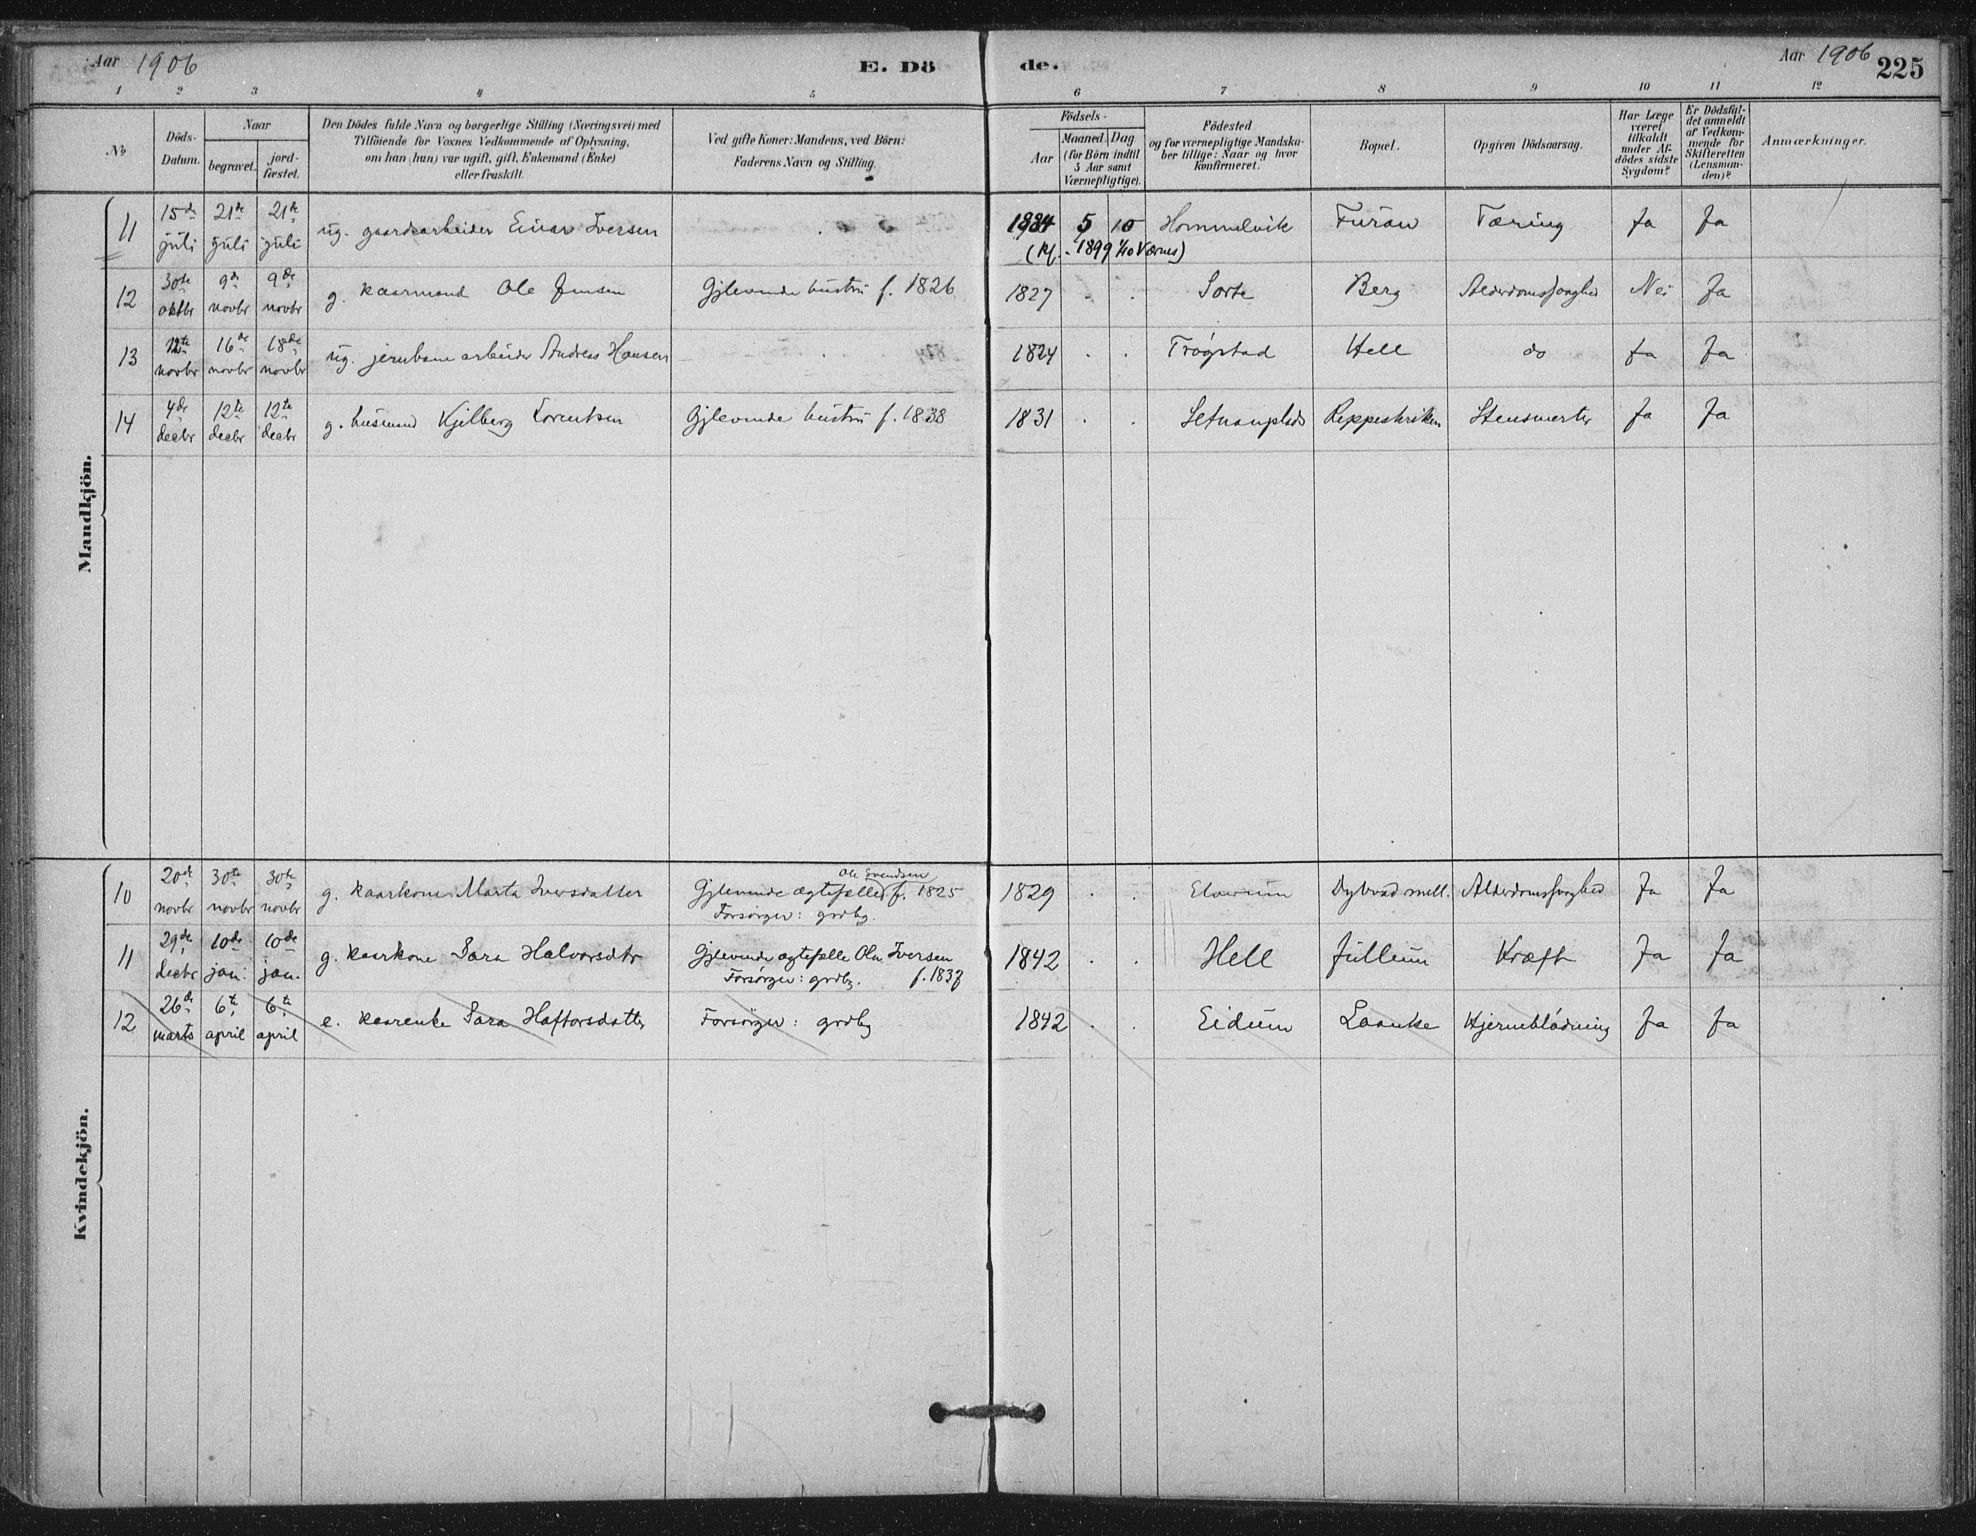 Aar 1906
E. Dö
de.
Aar 1906
225
1 2 3 4 5 6 7 8 9 10 11 12
No
Döds-
Datum.
Naar
begravet.
jord-
fæstet.
Den Dödes fulde Navn og borgerlige Stilling (Næringsvei) med
Tilföiende for Voxnes Vedkommende af Oplysning,
om han (hun) var ugift, gift, Enkemand (Enke)
eller fraskilt.
Ved gifte Koner: Mandens, ved Börn:
Faderens Navn og Stilling.
Födsels-
Aar
Maaned.
Dag
(for Börn indtil
5 Aar samt
Værnepligtige).
Födested
og for værnepligtige Mandska-
ber tillige: Naar og hvor
Konfirmeret.
Bopæl.
Opgiven Dödsaarsag.
Har Læge
været
tilkaldt
under Af-
dödes sidste
Sygdom?
Er Dödsfal-
det anmeldt
af Vedkom-
mende for
Skifteretten
(Lensman-
den)?
Anmærkninger.
Mandkjön.
11 15de juli 21de juli 21de juli ug. gaardsarbeider Einar Iversen 1884 5 10 Hommelvik Furan Tæring Ja Ja
1899 1/10 Værnes)
12 30te oktbr 9de novbr 9de novbr g. kaarmand Ole Jensen Gjlevende hustru f. 1826 1827 Sorte Berg Alderdomssvaghed Nei Ja
13 12te novbr 16de novbr 18de novbr ug. jernbanearbeider Andreas Hansen 1824 Trøgstad Hell do Ja Ja
14 4de decbr 12te decbr 12te decbr g. husmand Kjelberg Lorentsen Gjlevende hustru f. 1838 1831 Setnanplads Reppestriken Stensmerter Ja Ja
Kvindekjön.
10 20de novbr 30te novbr 30te novbr g. kaarkone Marta Iversdatter Ole Svendsen
Gjlevende ægtefælle f. 1825 1829 Dybvad mell. Alderdomssvaghed Ja Ja
Forsørger: grdbg.
11 29de decbr 10de jan. 10de jan. g. kaarkone Sara Halvorsdtr Gjlevende ægtefælle Ole Iversen 1842 Hell Jullum Kræft Ja Ja
Forsørger: grdbg. f. 1837
12 26de marts 6te april 6te april e. kaarenke Sara Haftorsdatter Forsørger: grdbg 1842 Eidum Laanke Hjerneblødning Ja Ja